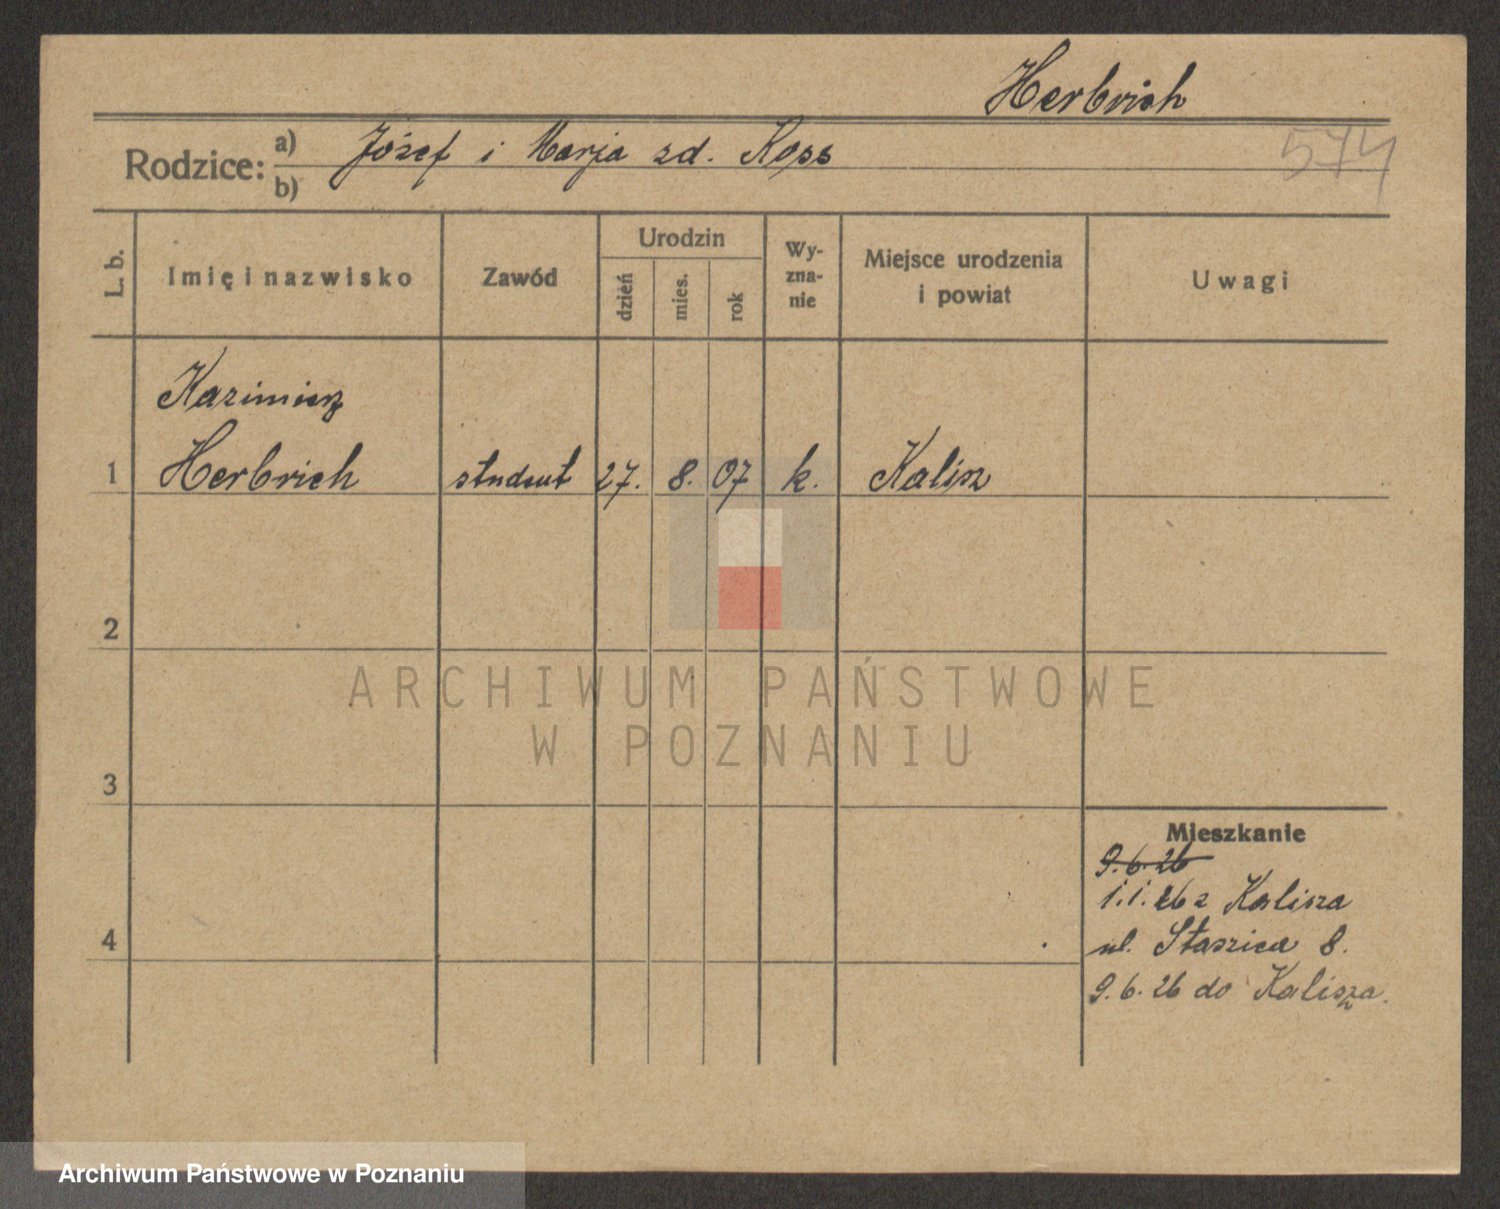 Herbrich
574
Rodzice: a) Józef i Marja zd. Koss
b)
L. b.
Imię i nazwisko
Zawód
Urodzin
dzień
mies.
rok
Wy-
zna-
nie
Miejsce urodzenia
i powiat
Uwagi
Kazimierz
1 Herbrich student 27. 8. 07 k. Kalisz
2
3
4
Mieszkanie
9.6.26
1.1.26 z Kalisza
ul. Staszica 8.
9.6.26 do Kalisza.
ARCHIWUM PAŃSTWOWE
W POZNANIU
Archiwum Państwowe w Poznaniu